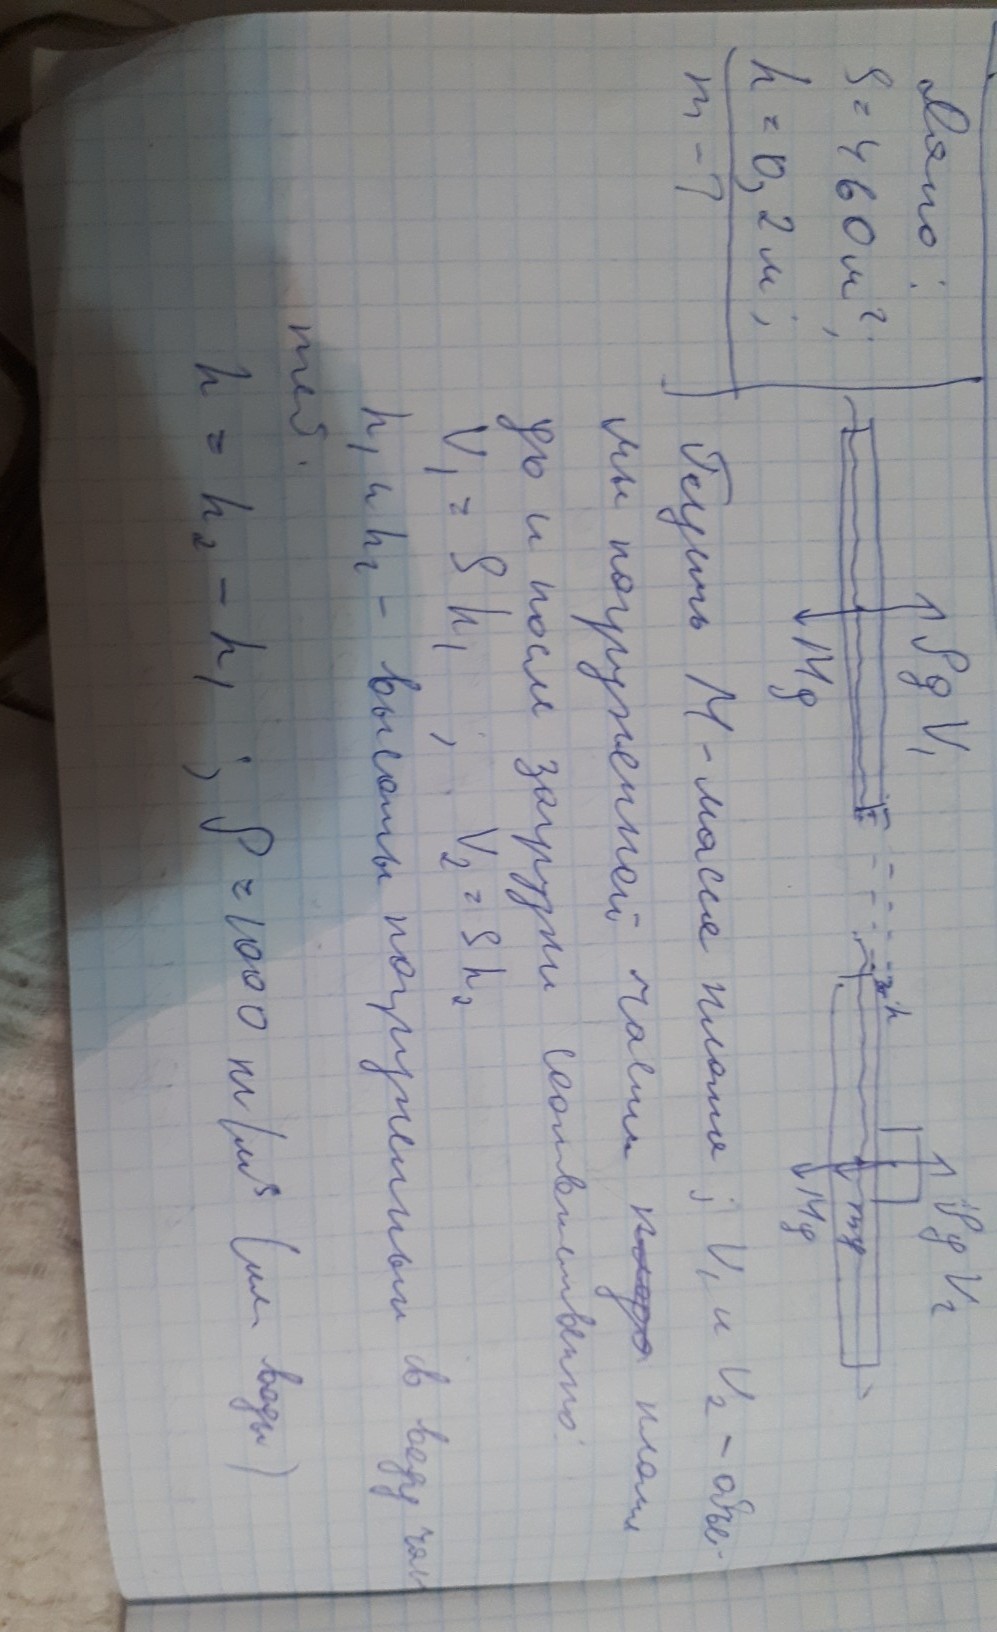 Дано:
S = 460 м²;
h = 0,2 м;
m - ?
ρgV₁
Mg
h
ρgV₂
mg
Mg
Пусть M - масса плота; V₁ и V₂ - объе-
мы погруженной части плота
до и после загрузки соответственно:
V₁ = Sh₁ ; V₂ = Sh₂
h₁ и h₂ - высоты погруженных в воду час
тей.
h = h₂ - h₁ ; ρ = 1000 кг/м³ (пл. воды)